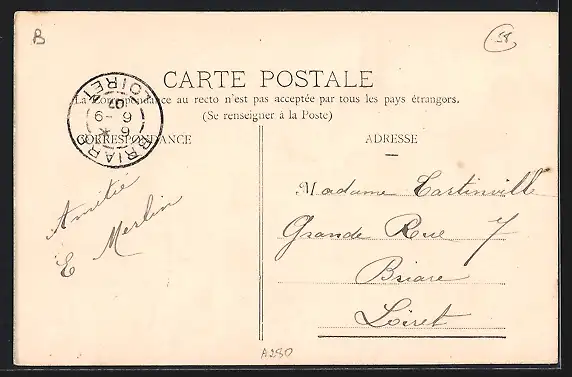 B
58
CARTE POSTALE
La Correspondance au recto n'est pas acceptée par tous les pays étrangers.
(Se renseigner à la Poste)
BRIARE
LOIRET
CORRESPONDANCE
ADRESSE
Amitié
E Merlin
Madame Tartinville
Grande Rue 7
Briare
Loiret
A280